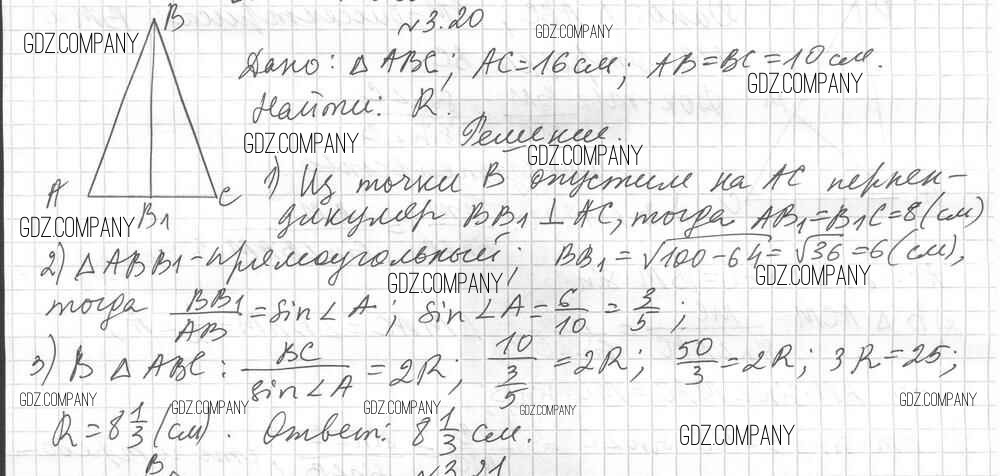 B
№3.20
GDZ.COMPANY
GDZ.COMPANY
Дано: △ ABC; AC=16 см; AB=BC=10 см.
GDZ.COMPANY
Найти: R.
GDZ.COMPANY
Решение.
GDZ.COMPANY
A
C
B1
GDZ.COMPANY
1) Из точки B опустим на AC перпен-
дикуляр BB1 ⊥ AC, тогда AB1=B1C=8(см)
2) △ABB1-прямоугольный; BB1=√100-64=√36=6(см),
GDZ.COMPANY
GDZ.COMPANY
тогда BB1/AB=sin∠A; sin∠A=6/10=3/5;
3) В △ABC: BC/sin∠A=2R; 10/(3/5)=2R; 50/3=2R; 3R=25;
GDZ.COMPANY
GDZ.COMPANY
GDZ.COMPANY
GDZ.COMPANY
GDZ.COMPANY
R=8 1/3 (см). Ответ: 8 1/3 см.
GDZ.COMPANY
B
№3.21